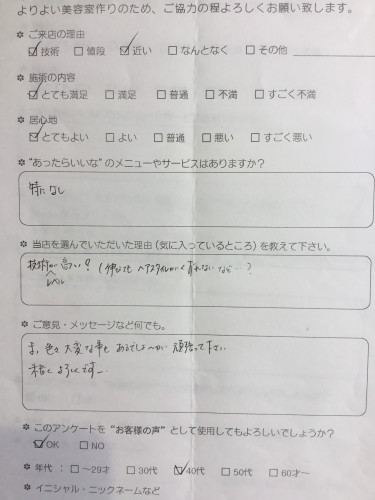 よりよい美容室作りのため、ご協力の程よろしくお願い致します。
✲ ご来店の理由
☑技術 □値段 ☑近い □なんとなく □その他
✲ 施術の内容
☑とても満足 □満足 □普通 □不満 □すごく不満
✲ 居心地
☑とてもよい □よい □普通 □悪い □すごく悪い
✲ “あったらいいな”のメニューやサービスはありますか？
特になし
✲ 当店を選んでいただいた理由（気に入っているところ）を教えて下さい。
技術が高い？（伸びても ヘアスタイルがくずれないなど…？
レベル
✲ ご意見・メッセージなど何でも。
ま、色々 大変な事も あるでしょーが 頑張って下さい
末長く よろしくですー
✲ このアンケートを“お客様の声”として使用してもよろしいでしょうか？
☑OK □NO
✲ 年代 ： □～29才 □30代 ☑40代 □50代 □60才～
✲ イニシャル・ニックネームなど